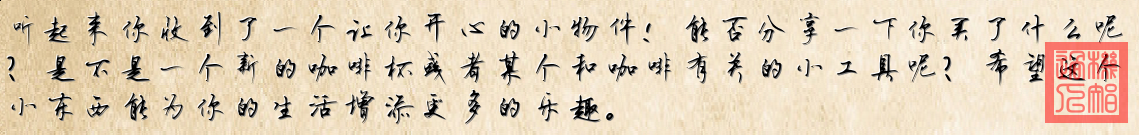 听起来你收到了一个让你开心的小物件！能否分享一下你买了什么呢
？是不是一个新的咖啡杯或者某个和咖啡有关的小工具呢？希望这个
小东西能为你的生活增添更多的乐趣。